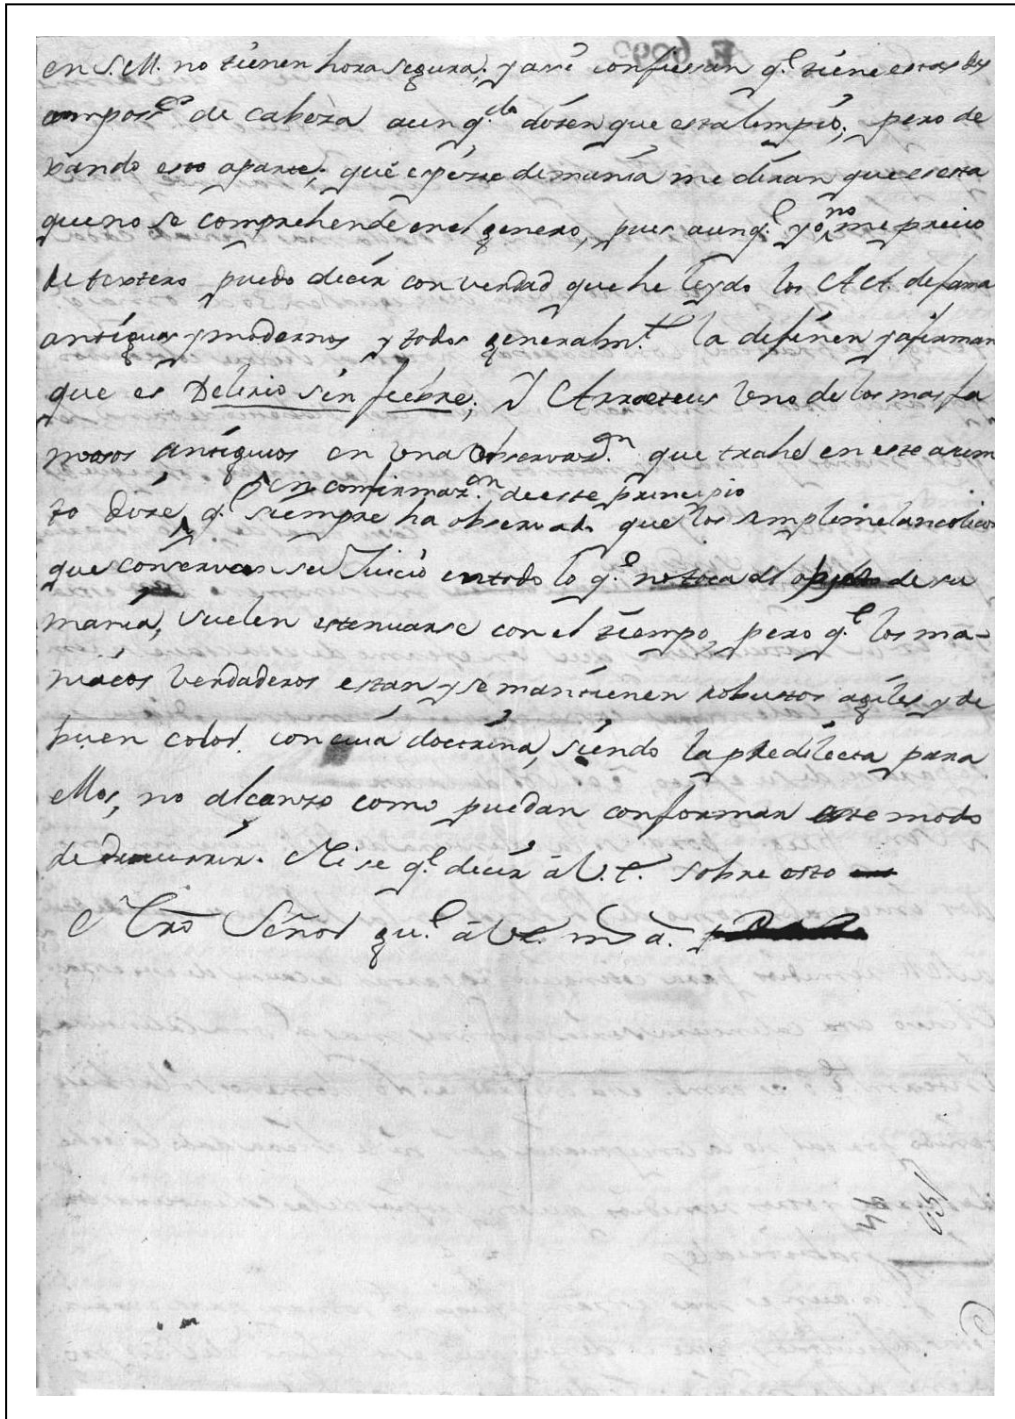 en S.M. no tienen hora segura; y assi confiesan q.e tiene estas des
compos.es de cabeza aunq.e dizen que esta limpio; pero de
xando esto aparte; què especie de manìa me diràn que es esta
que no se comprehende en el genero, pues aunq.e yo no me precio
de textero puedo decir con verdad que he leydo los AA. de fama
antiguos y modernos y todos generalm.te la definen y afirman
que es Delirio sin fiebre; Arraeteus Uno de los mas fa
mosos antiguos en Una observaz.on que trahe en este asum
to dize, q.e en confirmaz.on de este principio siempre ha observado que los simplem melancolicos
que conservan su Juicio en todo lo q.e no toca al objeto de su
mania, suelen estenuarse con el tiempo, pero q.e los ma-
niácos verdaderos estan y se mantienen robustos agiles y de
buen color. con cuia doctrina, siendo la predilecta para
ellos, no alcanzo como puedan conformar este modo
de discurrir. Ni se q.e decir à V.E. sobre esto
Señor gu.e à V.E. m.s a.s